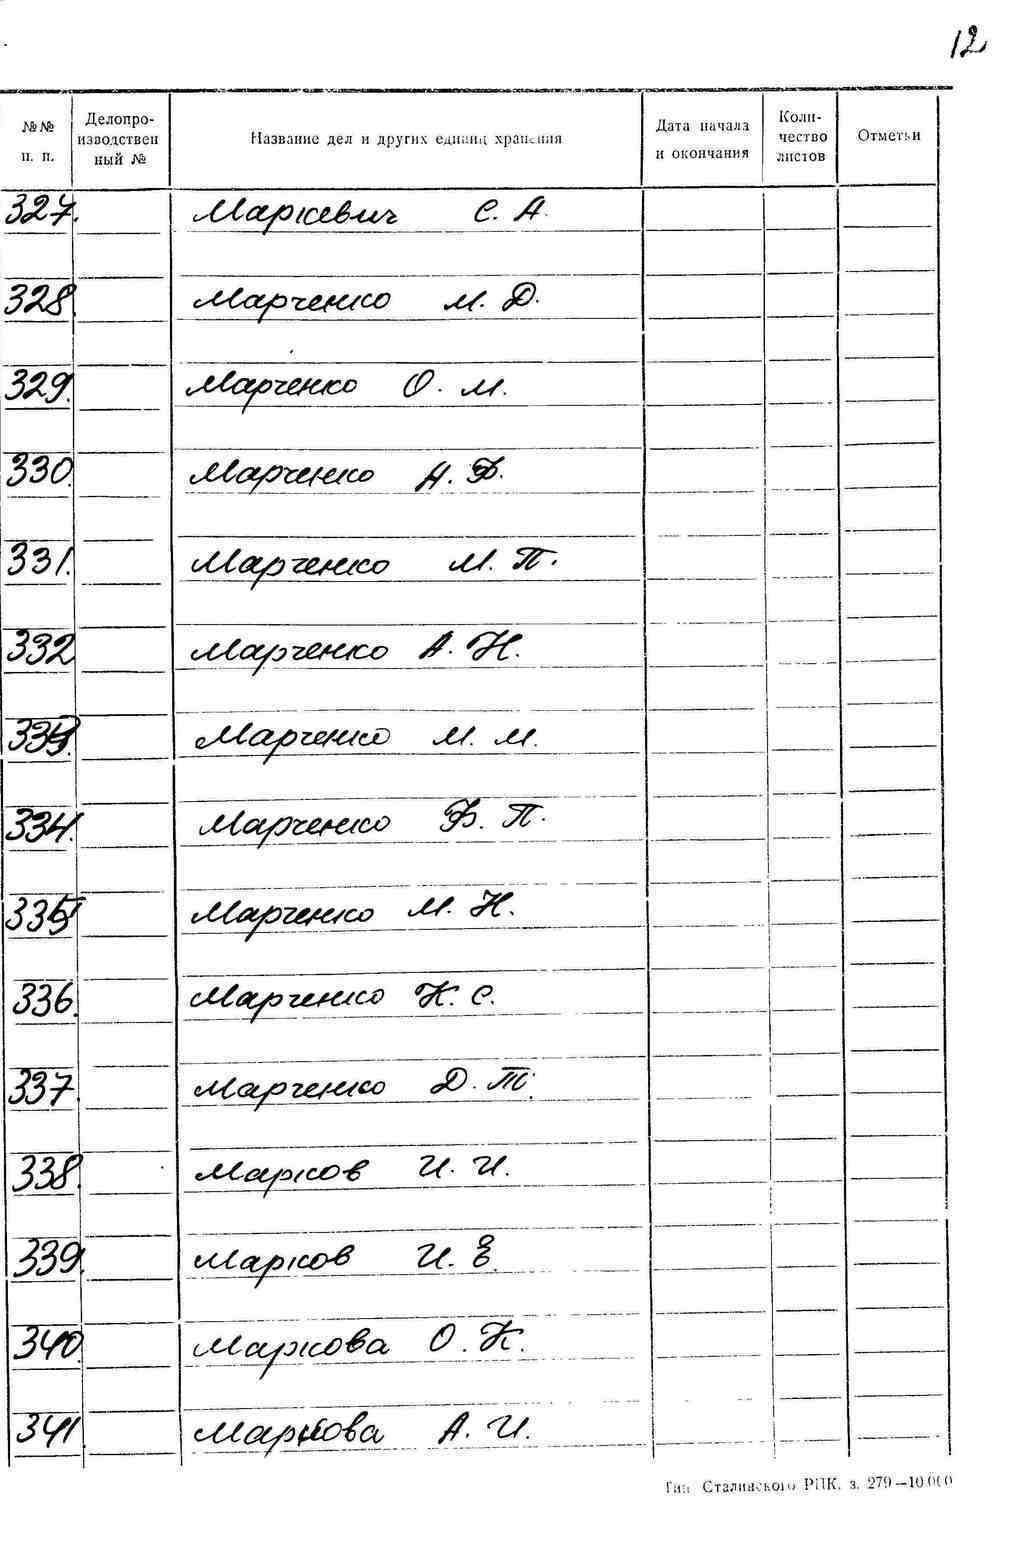 12
№№ п. п.
Делопро-
изводствен
ный №
Название дел и других единиц хранения
Дата начала
и окончания
Коли-
чество
листов
Отметки
327. Маркевич С. А.
328. Марченко М. Д.
329. Марченко О. М.
330. Марченко А. Ф.
331. Марченко М. П.
332 Марченко А. Н.
333. Марченко М. М.
334. Марченко Ф. П.
335 Марченко М. Н.
336. Марченко К. С.
337. Марченко Д. Т.
338. Марков И. И.
339. Марков И. Е.
340. Маркова О. К.
341 Маркова А. И.
Тип Сталинского РПК. з. 279—10.000